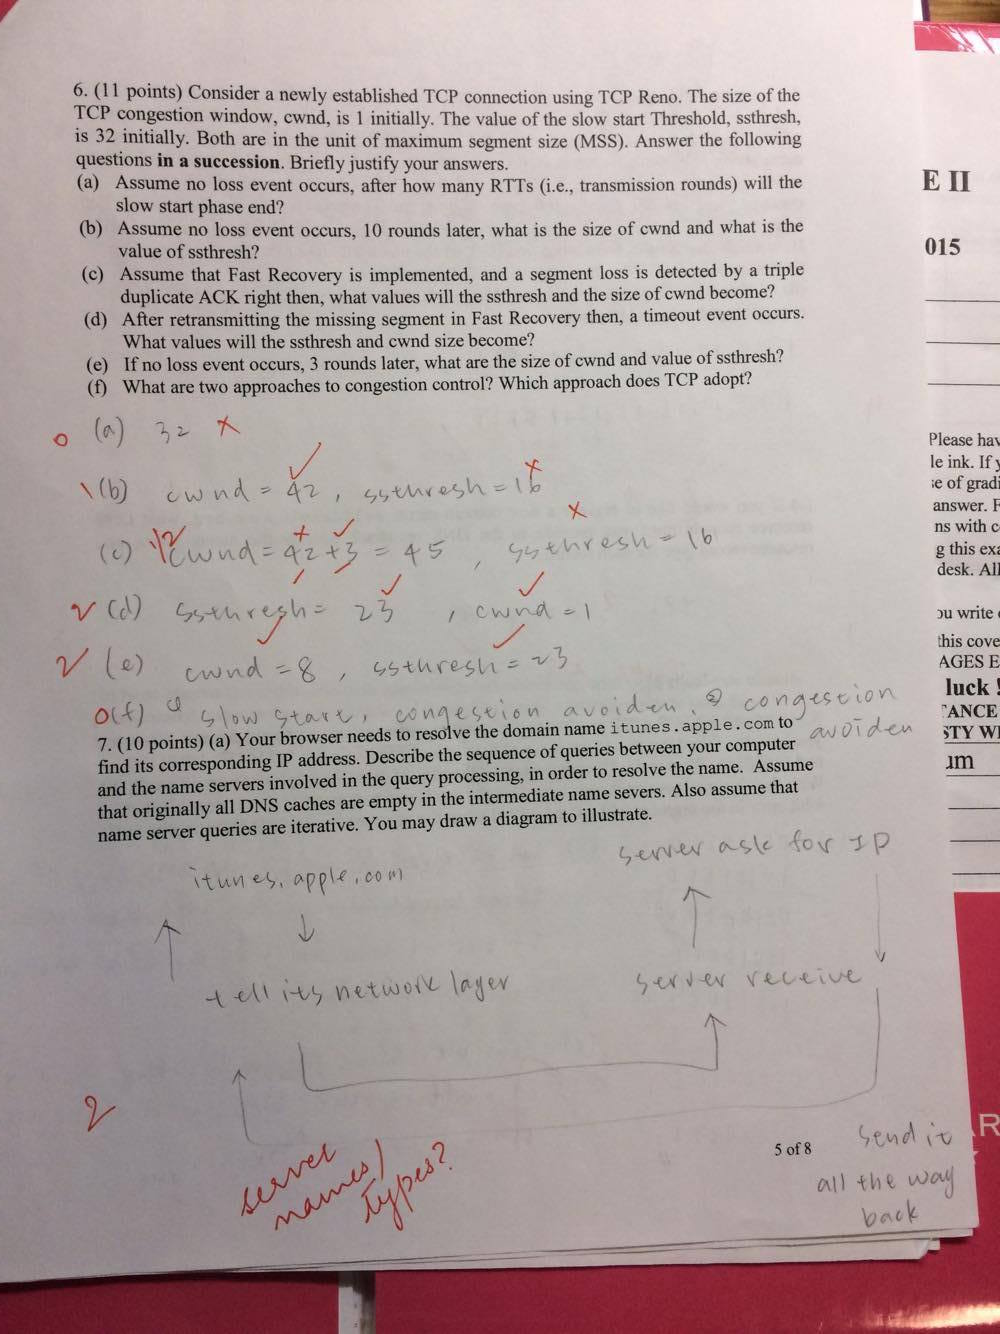 6. (11 points) Consider a newly established TCP connection using TCP Reno. The size of the
TCP congestion window, cwnd, is 1 initially. The value of the slow start Threshold, ssthresh,
is 32 initially. Both are in the unit of maximum segment size (MSS). Answer the following
questions in a succession. Briefly justify your answers.
(a) Assume no loss event occurs, after how many RTTs (i.e., transmission rounds) will the
slow start phase end?
(b) Assume no loss event occurs, 10 rounds later, what is the size of cwnd and what is the
value of ssthresh?
(c) Assume that Fast Recovery is implemented, and a segment loss is detected by a triple
duplicate ACK right then, what values will the ssthresh and the size of cwnd become?
(d) After retransmitting the missing segment in Fast Recovery then, a timeout event occurs.
What values will the ssthresh and cwnd size become?
(e) If no loss event occurs, 3 rounds later, what are the size of cwnd and value of ssthresh?
(f) What are two approaches to congestion control? Which approach does TCP adopt?
0 (a) 32
1 (b) cwnd = 42, ssthresh = 16
(c) cwnd = 42 + 3 = 45, ssthresh = 16
2 (d) ssthresh = 23, cwnd = 1
2 (e) cwnd = 8, ssthresh = 23
0 (f) ① slow start, congestion avoiden. ② congestion
avoiden
7. (10 points) (a) Your browser needs to resolve the domain name itunes.apple.com to
find its corresponding IP address. Describe the sequence of queries between your computer
and the name servers involved in the query processing, in order to resolve the name. Assume
that originally all DNS caches are empty in the intermediate name severs. Also assume that
name server queries are iterative. You may draw a diagram to illustrate.
server ask for IP
itunes.apple.com
tell its network layer
server receive
2
server
names/
types?
5 of 8
Send it
all the way
back
E II
015
Please hav
le ink. If y
e of gradi
answer. F
ns with c
g this exa
desk. All
ou write
this cove
AGES E
luck !
TANCE
STY WI
um
R